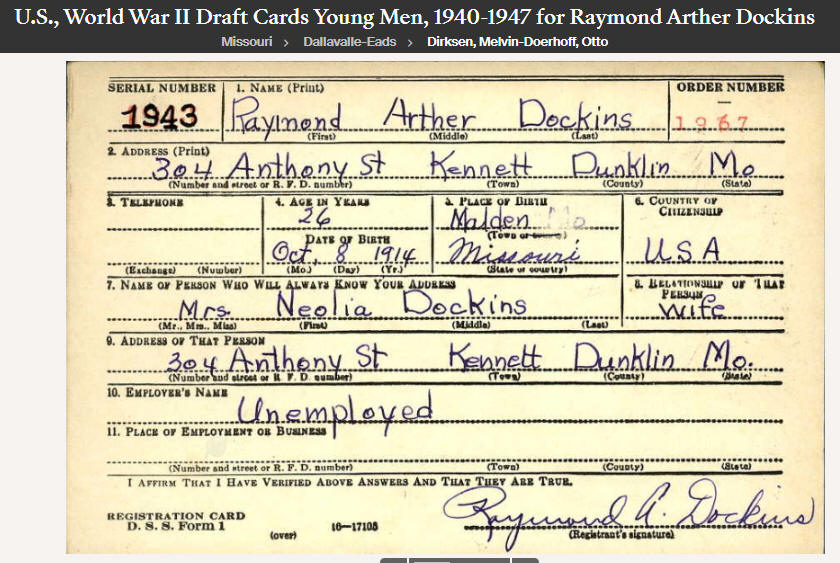 U.S., World War II Draft Cards Young Men, 1940-1947 for Raymond Arther Dockins
Missouri > Dallavalle-Eads > Dirksen, Melvin-Doerhoff, Otto
SERIAL NUMBER 1. NAME (Print) ORDER NUMBER
1943 Raymond Arther Dockins 1967
(First) (Middle) (Last)
2. ADDRESS (Print)
304 Anthony St Kennett Dunklin Mo
(Number and street or R. F. D. number) (Town) (County) (State)
3. TELEPHONE 4. AGE IN YEARS 5. PLACE OF BIRTH 6. COUNTRY OF CITIZENSHIP
26 Malden Mo
(Town or county)
DATE OF BIRTH
Oct. 8 1914 Missouri USA
(Exchange) (Number) (Mo.) (Day) (Yr.) (State or country)
7. NAME OF PERSON WHO WILL ALWAYS KNOW YOUR ADDRESS 8. RELATIONSHIP OF THAT PERSON
Mrs. Neolia Dockins wife
(Mr., Mrs., Miss) (First) (Middle) (Last)
9. ADDRESS OF THAT PERSON
304 Anthony St Kennett Dunklin Mo.
(Number and street or R. F. D. number) (Town) (County) (State)
10. EMPLOYER'S NAME
Unemployed
11. PLACE OF EMPLOYMENT OR BUSINESS
(Number and street or R. F. D. number) (Town) (County) (State)
I AFFIRM THAT I HAVE VERIFIED ABOVE ANSWERS AND THAT THEY ARE TRUE.
REGISTRATION CARD
D. S. S. Form 1
(over) 16—17105
Raymond A. Dockins
(Registrant's signature)